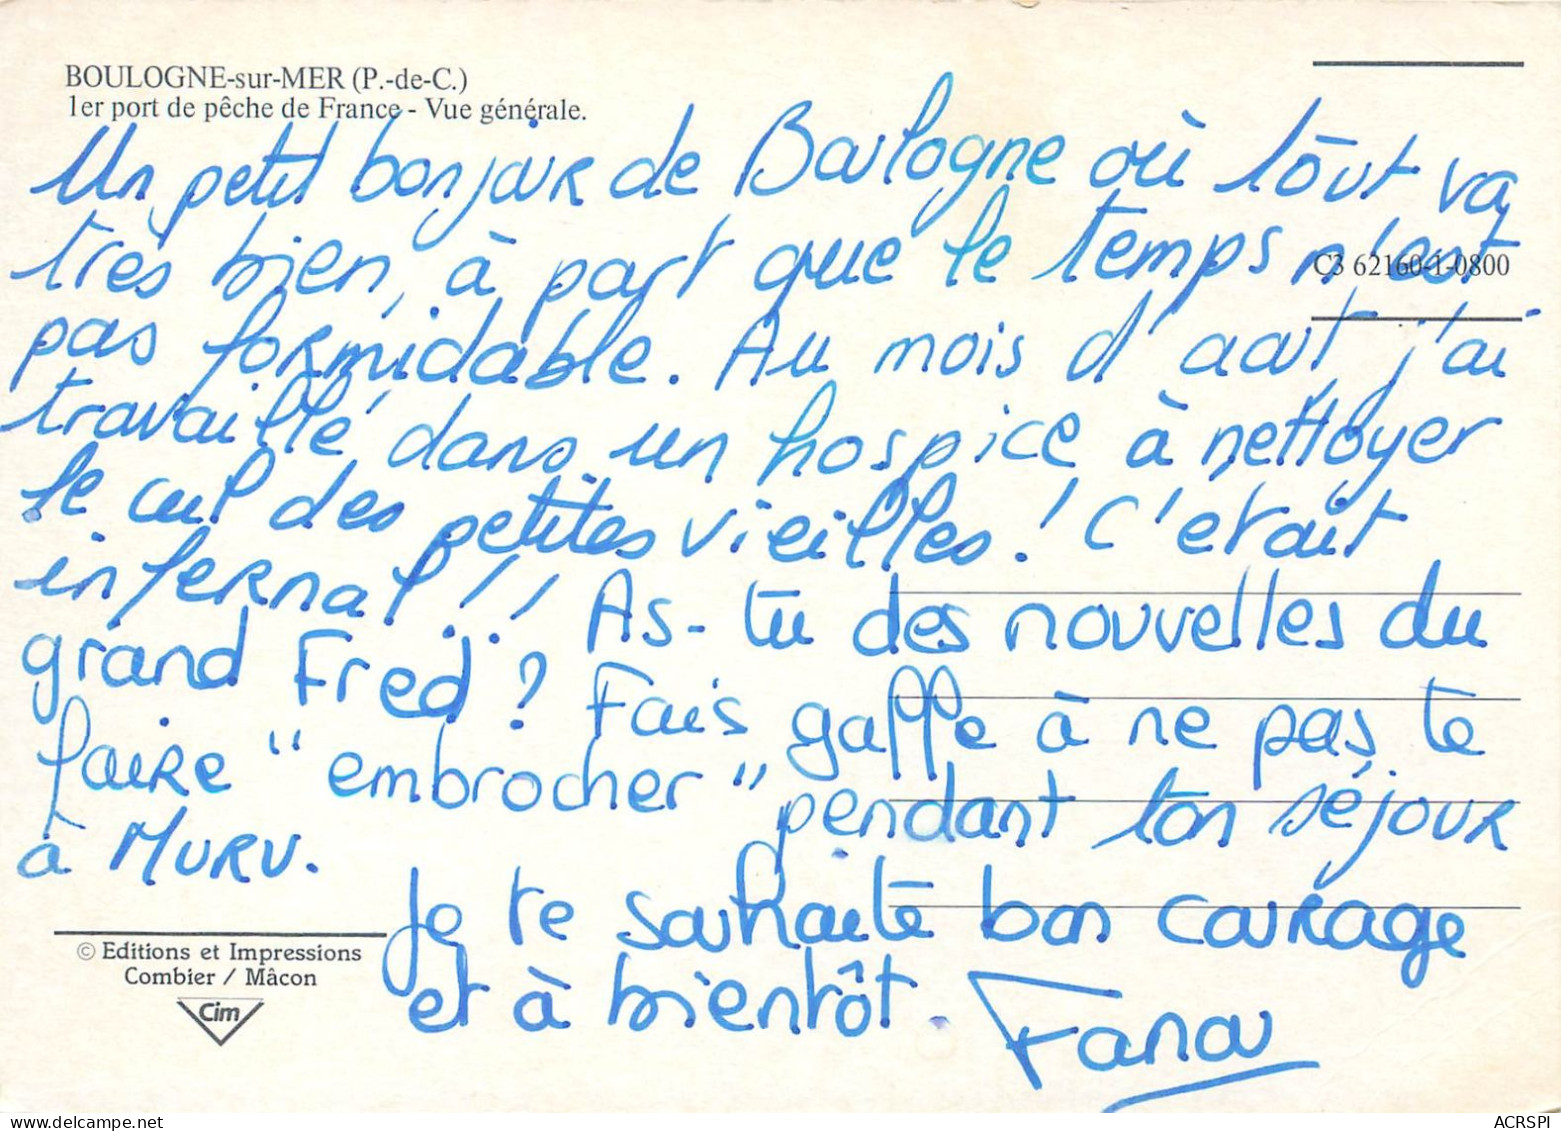 BOULOGNE-sur-MER (P.-de-C.)
1er port de pêche de France - Vue générale.
Un petit bonjour de Boulogne où tout va
très bien, à part que le temps n'est
C3 62160-1-0800
pas formidable. Au mois d'aout j'ai
travaillé dans un hospice à nettoyer
le cul des petites vieilles! C'etait
infernal!! As-tu des nouvelles du
grand Fred? Fais gaffe à ne pas te
faire "embrocher" pendant ton séjour
à MURV.
Je te souhaite bon courage
et à bientôt.
© Editions et Impressions
Combier / Mâcon
Cim
Fanou
delcampe.net
ACRSPI